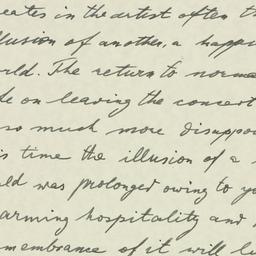 eates in the artist often th
llusion of another, a happi
rld. The return to norma
de on leaving the concert
so much more disappoi
is time the illusion of a
ld was prolonged owing to yo
arming hospitality and
membrance of it will li